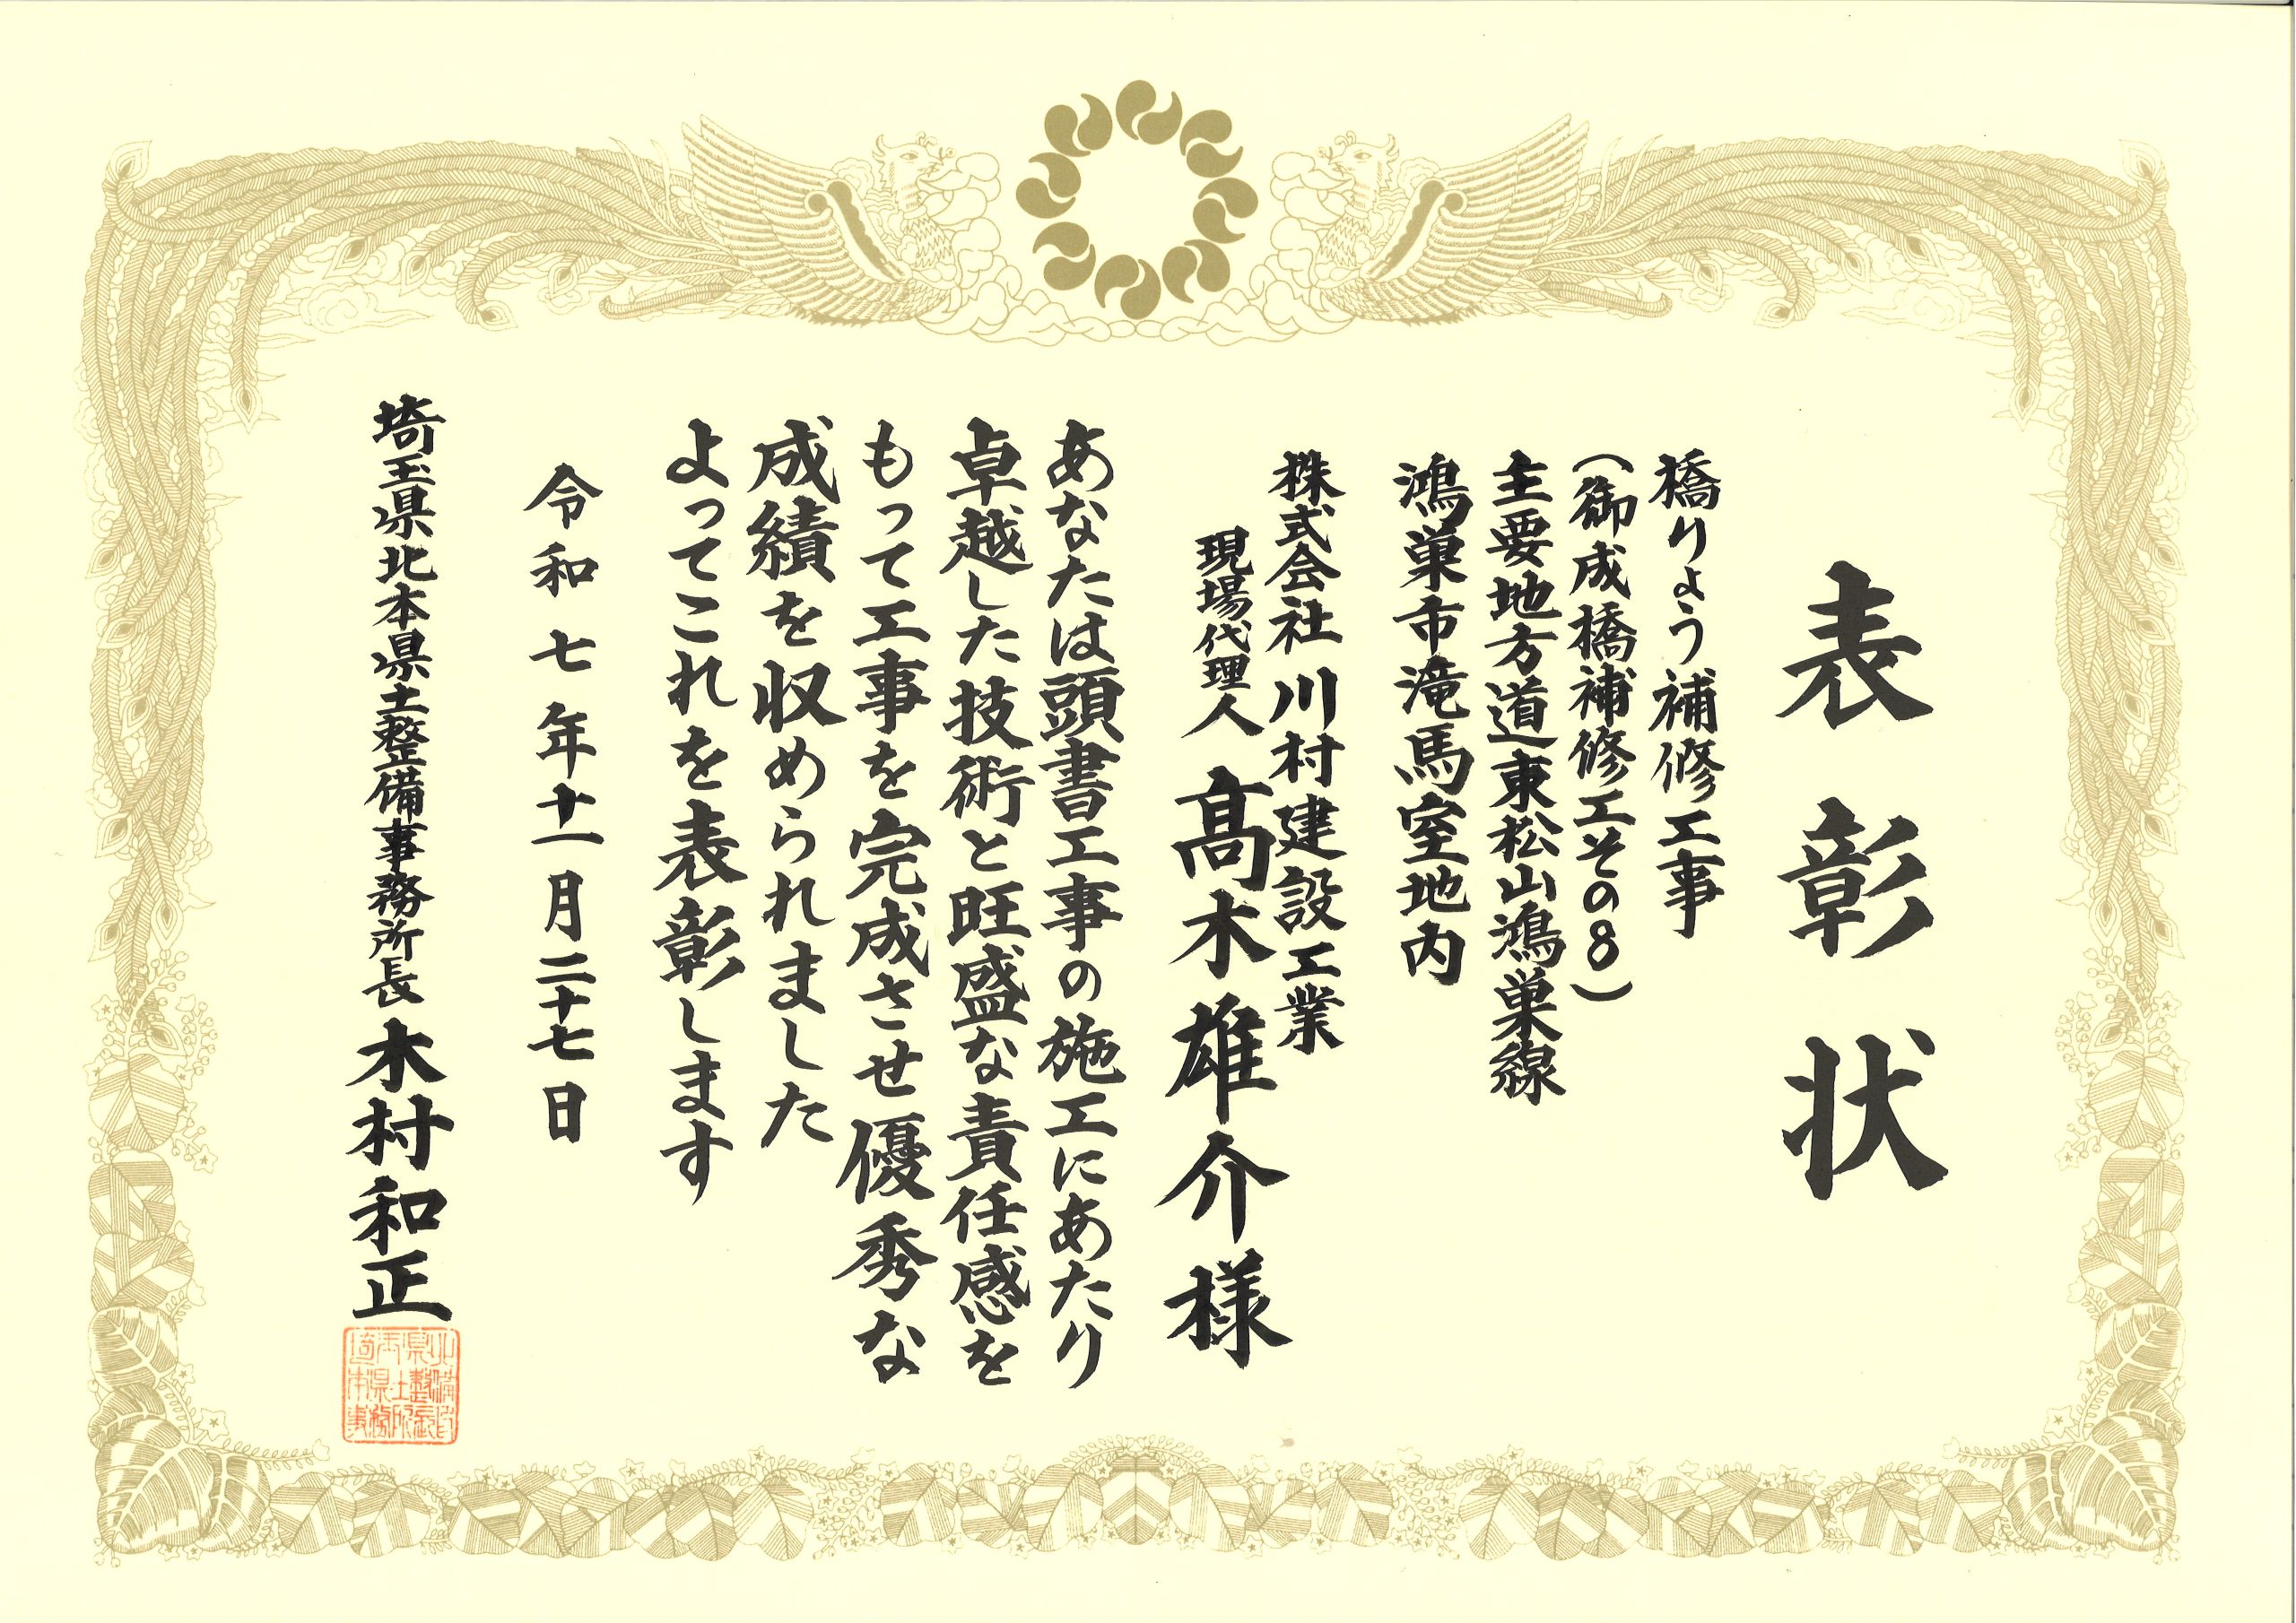 表彰状
橋りょう補修工事
（御成橋補修工その8）
主要地方道東松山鴻巣線
鴻巣市滝馬室地内
株式会社川村建設工業
現場代理人 髙木雄介様
あなたは頭書工事の施工にあたり
卓越した技術と旺盛な責任感を
もって工事を完成させ優秀な
成績を収められました
よってこれを表彰します
令和七年十一月二十七日
埼玉県北本県土整備事務所長 木村和正